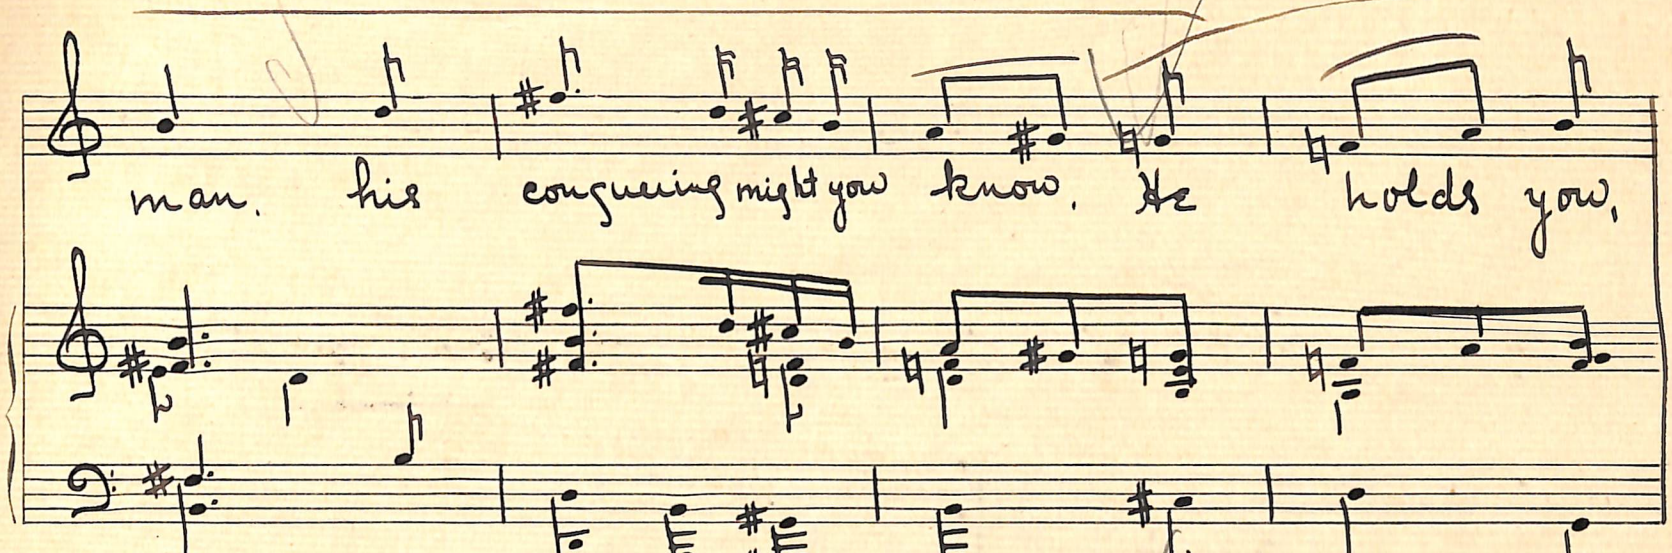 man. his conquering might you know. He holds you,